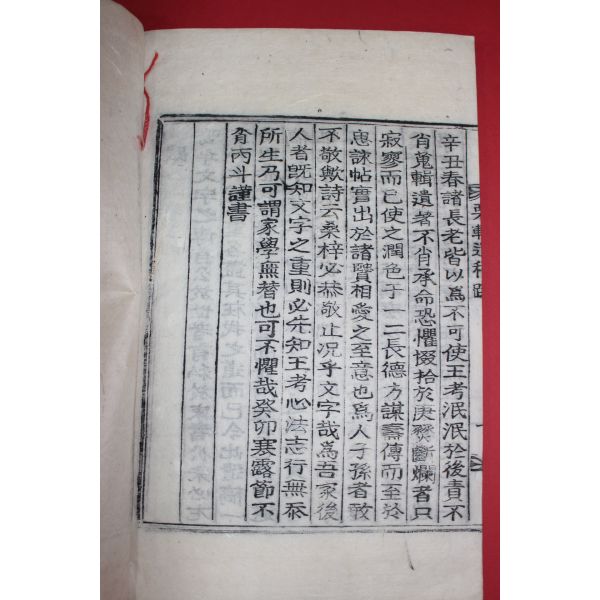 辛丑春諸長老皆以爲不可使王考泯泯於後責不
肖蒐輯遺著不肖承命恐懼掇拾於庚癸斷爛者只
寂寥而已使之潤色于一二長德方謀壽傳而至於
惠誄帖實出於諸賢相愛之至意也爲人子孫者敢
不敬歟詩云桑梓必恭敬止况乎文字哉爲吾家後
人者旣知文字之重則必先知王考心法志行無忝
所生乃可謂家學無替也可不懼哉癸卯寒露節不
肖丙斗謹書